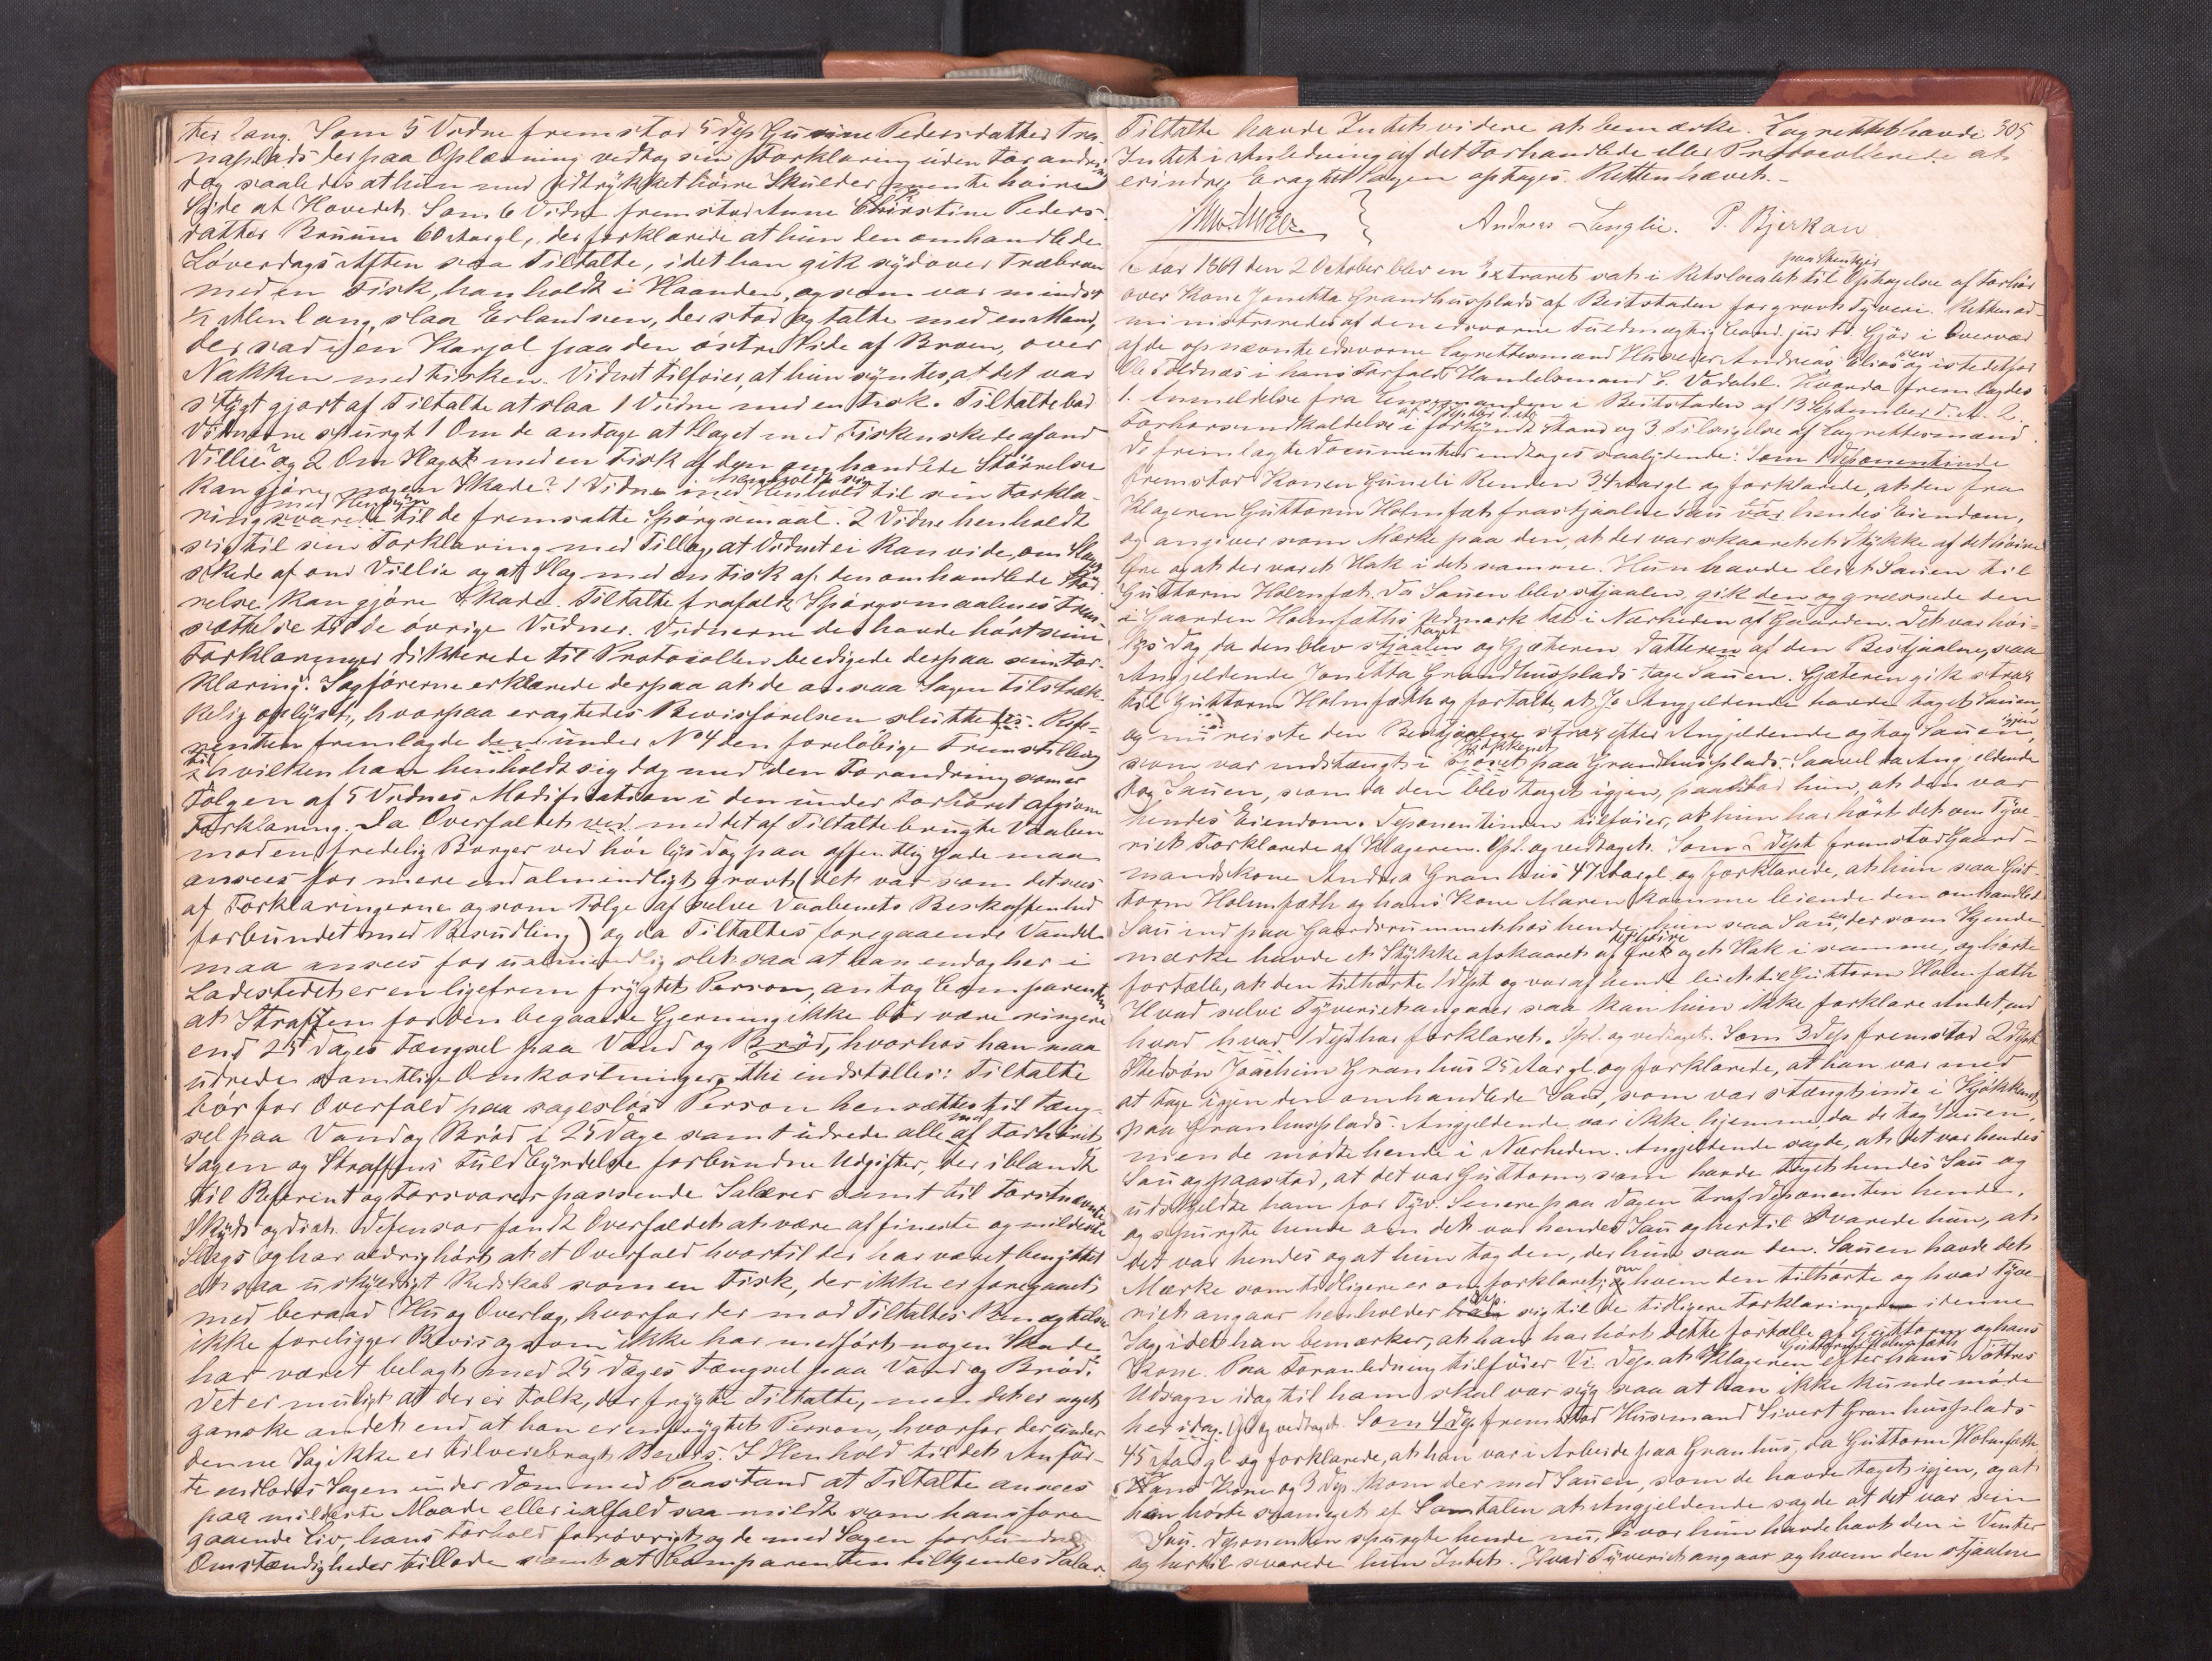 ter lang. Som 5 Vidne fremstod 5 Dep Gurine Pedersdatter Tra-
naplads der paa Oplæsning vedtog sin Forklaring uden Forandring
dog saaledes at hun med Udtrykket høire Skulder mente høire
Side af Hovedet. Som 6 Vidne fremstod Anne Christine Peders-
datter Bruum 60 Aargl., der forklarede at hun den omhandlede
Løverdags Aften saa Tiltalte, idet han gik sydover Træbroen
med en Fisk, han holdt i Haanden, og som var mindst
½ Alen lang, slaa Erlandsen, der stod og talte med en Mand,
der sad i en Karjol paa den østre Side af Broen, over
Nakken med Fisken. Vidnet tilføier, at hun syntes, at det var
stygt gjort af Tiltalte at slaa 1 Vidne med en Fisk. Tiltalte bad
Vidnerne spurgt 1 Om de antage at Slaget med Fisken skede af ond
Villie? og 2 Om Slaget med en Fisk af den omhandlede Størrelse
kan gjøre nogen Skade? 1 Vidne henholdt sig til sin Forkla-
ring svarede til de fremsatte Spørgsmaal. 2 Vidne henholdt
sig til sin Forklaring med Tillæg, at Vidnet ei kan vide, om Slag
skede af ond Villie og at Slag med en Fisk af den omhandlede Stør-
relse kan gjøre Skade. Tiltalte frafaldt Spørgsmaalenes Frem-
sættelse til de øvrige Vidner. Vidnerne der havde hørt sine
Forklaringer dikterede til Protocollen beedigede derpaa sin For-
klaring. Sagførerne erklærede derpaa at de ansaa Sagen tilstræk-
kelig oplyst, hvorpaa eragtedes Bevisførelsen sluttedes. Refe-
renten fremlagde den under No 4 den foreløbige Fremstilling
til hvilken han henholdt sig dog med den Forandring som er
Følgen af 5 Vidnes Modification i den under Forhøret afgivne
Forklaring. Da Overfaldet ved med det af Tiltalte brugte Vaaben
mod en fredelig Borger ved høi lys dag paa offentlig Gade maa
ansees for mere end almindeligt grovt (det var som det sees
af Forklaringerne og som Følge af selve Vaabenets Beskaffenhed
forbundet med Besudling) og da Tiltaltes foregaaende Vandel
maa ansees for ualmindelig slet saa at han endog her i
Ladestedet er en ligefrem frygtet Person, antog Comparenten
at Straffen for den begaaede Gjerning ikke bør være ringere
end 25 Dages Fængsel paa Vand og Brød, hvorhos han maa
udrede samtlige Omkostninger. Thi indstilles: Tiltalte
bør for Overfald paa sagesløs Person hensættes til Fæng-
sel paa Vand og Brød i 25 Dage samt udrede alle af med Forhøret,
Sagen og Straffens Fuldbyrdelse forbundne Udgifter, der iblandt
til Referent og Forsvarer passende Salærer samt til Førstnævnte
Skyds og diæt. Defensor fandt Overfaldet at være af fineste og mildeste
Slags og har aldrig hørt at et Overfald hvortil der har været benyttet
et saa uskyldigt Redskab som en Fisk, der ikke er foregaaet
med beraad Hu og Overlæg, hvorfor der mod Tiltaltes Benægtelse
ikke foreligger Bevis og som ikke har medført nogen Skade
har været belagt med 25 Dages Fængsel paa Vand og Brød.
Det er muligt at der er Folk, der frygte Tiltalte, men det er noget
ganske andet end at han er en frygtet Person, hvorfor der under
denne Sag ikke er tilveiebragt Beviis. I Henhold til det Anfør-
te indlodes Sagen under Dom med Paastand at Tiltalte ansees
paa mildeste Maade eller ialfald saa mildt som hans fore-
gaaende Liv, hans Forhold forøvrigt og de med Sagen forbundne
Omstændigheder tillade samt at Comparenten tilkjendes Salær.
Tiltalte havde Intet videre at bemærke. Lagrettet havde 305
Intet i Anledning af det Forhandlede eller Protocollerede at
erindre. Eragtet Sagen optages. Retten hævet.
Andreas Langlie. P. Bjerkan
Aar 1869 den 2 October blev en Extraret sat i Retslocalet paa Stenkjær til Optagelse af Forhør
over Kone Jonetta Grandhusplads af Beitstaden for grovt Tyveri. Retten ad-
ministreredes af den edsvorne Fuldmægtig Cand. jur. Gjør i Overvær
af de opnævnte edsvorne Lagrettesmænd Huseier Andreas Eliassen og istedetfor
Ole Foldnæs i hans Forfald Handelsmand C. Vodahl. Hvorda fremlagdes
1. Anmeldelse fra Lensmanden i Beitstaden af 13 September d. A. 2.
Forhørsindkaldelse af 29 September d. A. i forkyndt Stand og 3 Tilsigelse af Lagrettesmænd.
De fremlagte Documenter indtages saalydende: Som 1 Deponentinde
fremstod Konen Guneli Renden 34 Aargl. og forklarede, at den fra
Klageren Guttorm Holmfæt frastjaalne Sau var hendes Eiendom,
og angiver som Mærke paa den, at der var skaaret et Stykke af det høire
Øre og at der var et Hak i det samme. Hun havde leiet Sauen til
Guttorm Holmfæt. Da Sauen blev stjaalen, gik den og græssede den
i Gaarden Holmfæthis Udmark tæt i Nærheden af Gaarden. Det var høi-
lys Dag, da den blev stjaalen taget og Gjæteren, Datteren af den Bestjaalne, saa
Angjeldende Jonetta Grandhusplads tage Sauen. Gjæteren gik strax
til Guttorm Holmfæth og fortalte, at Jo Angjeldende havde taget Sauen,
og nu reiste den Bestjaalne strax efter Angjeldende og tog Sauen igjen,
som var indstængt i Kjøkkenet paa Grandhusplads. Saavel da Angjeldende
tog Sauen, som da den blev taget igjen, paastod hun, at den var
hendes Eiendom. Deponentinden tilføier, at hun har hørt det om Tyve-
riet Forklarede af Klageren. Opl. og vedtaget. Som 2 Dept fremstod Gaard-
mandskone Andrea Granhus 47 Aargl. og forklarede, at hun saa Gut-
torm Holmfæth og hans Kone Maren komme leiende den omhandlede
Sau ind paa Gaardsrummet hos hende, hun saa Sauen, der som Kjende-
mærke havde et Stykke afskaaret af det høire Øret og et Hak i samme, og hørte
fortælle, at den tilhørte 1 Dept og var af hende leiet til Guttorm Holmfæth
Hvad selve Tyveriet angaar saa kan hun ikke forklare Andet, end
hvad hvad 1 Dept har forklaret. Opl. og vedtaget. Som 3 Dep fremstod 2 Depts
Stedsøn Joachim Granhus 25 Aar gl. og forklarede, at han var med
at tage igjen den omhandlede Sau, som var stængt inde i Kjøkkenet
paa Granhusplads. Angjeldende var ikke hjemme, da de tog Sauen,
men de mødte hende i Nærheden. Angjeldende sagde, at det var hendes
Sau og paastod, at det var Guttorm, som havde taget hendes Sau og
udskjeldte ham for Tyv. Senere paa Dagen traf Deponenten hende,
og spurgte hende om det var hendes Sau og hertil svarede hun, at
det var hendes og at hun tog den, der hun saa den. Sauen havde det
Mærke som tidligere er omforklaret; om hvem den tilhørte og hvad Tyve-
riet angaar henholder Dep. sig til de tidligere Forklaringer i denne
Sag, idet han bemærker, at han har hørt dette fortælle af Guttorm og hans
Kone. Paa Foranledning tilføier Vi. Dep. at Klageren Guttorm Holmfæth efter hans Døttres
Udsagn idag til ham skal var syg saa at han ikke kunde møde
her idag. Opl og vedtaget. Som 4 Dep fremstod Husmand Sivert Granhusplads
45 Aar gl og forklarede, at han var i Arbeide paa Granhus, da Guttorm Holmfæth,
Hans Kone og 3 Dep. kom der med Sauen, som de havde taget igjen, og at
han hørte saameget af Samtalen at Angjeldende sagde at det var sin
Sau. Deponenten spurgte hende nu, hvor hun havde havt den i Vinter
og hertil svarede hun Intet. Hvad Tyveriet angaar og hvem den stjaalne